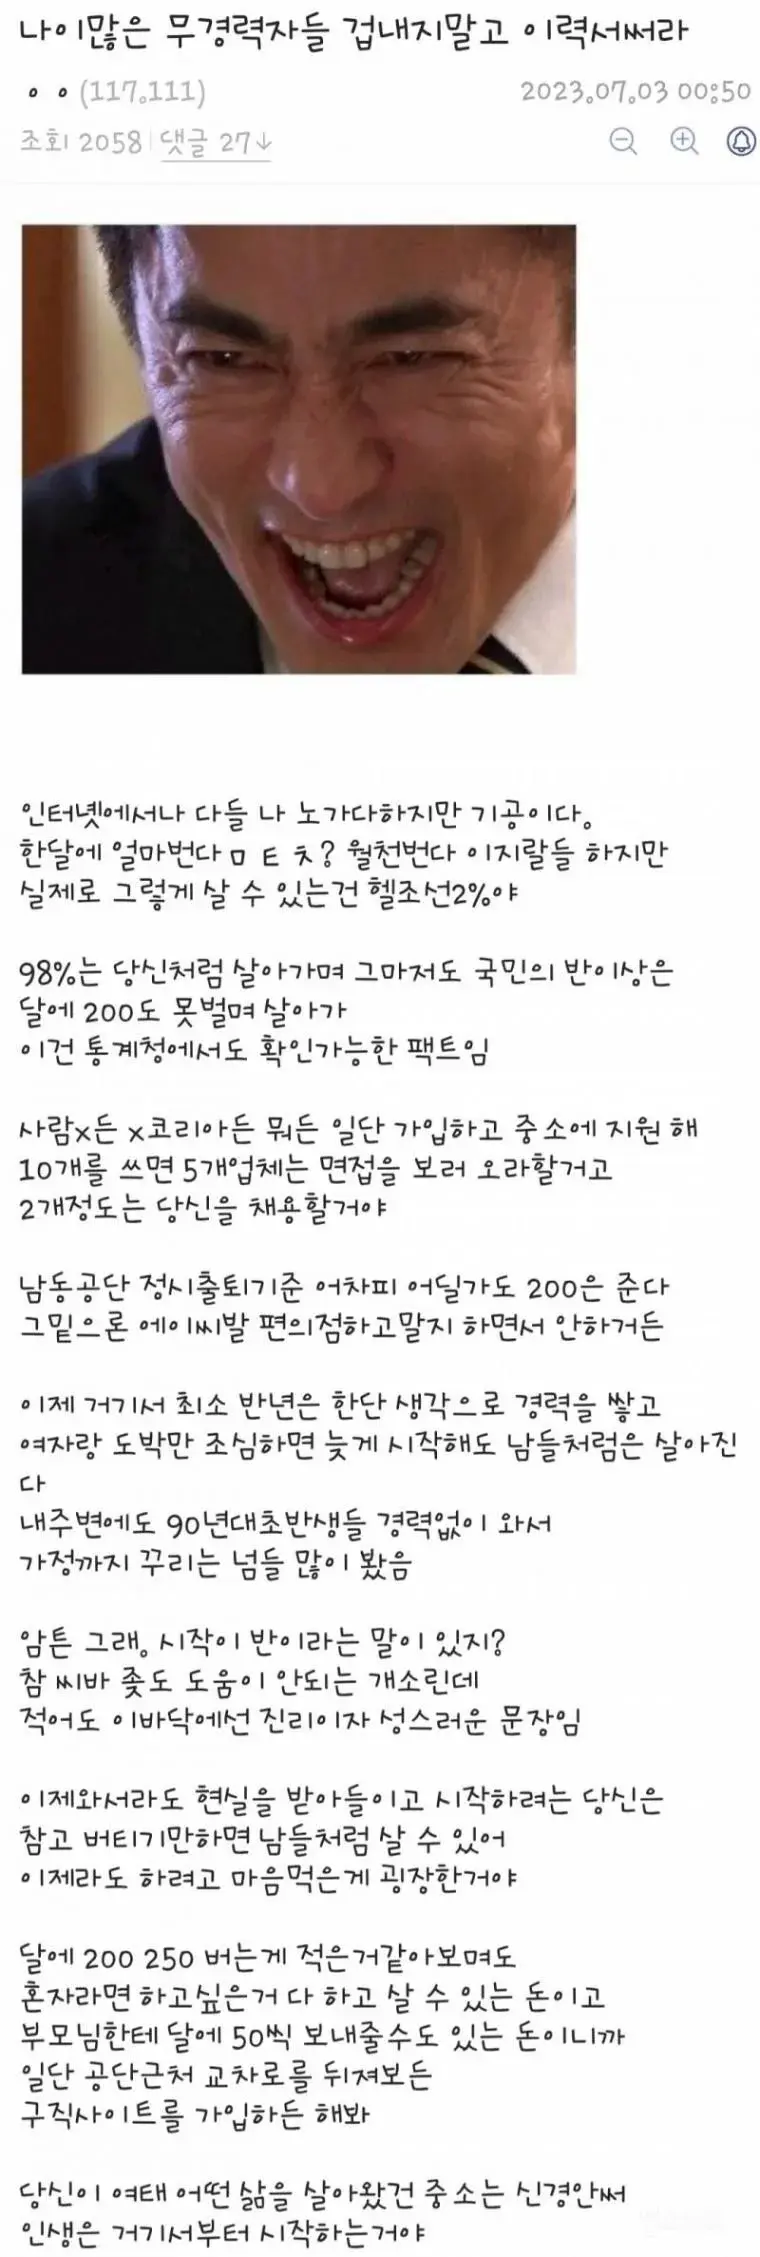 나이많은 무경력자들 겁내지말고 이력서써라
ㅇㅇ(117.111)
2023.07.03 00:50
조회 2058 | 댓글 27↓
인터넷에서나 다들 나 노가다하지만 기공이다.
한달에 얼마번다ㅁㅌㅊ? 월천번다 이지랄들 하지만
실제로 그렇게 살 수 있는건 헬조선2%야
98%는 당신처럼 살아가며 그마저도 국민의 반이상은
달에 200도 못벌며 살아가
이건 통계청에서도 확인가능한 팩트임
사람x든 x코리아든 뭐든 일단 가입하고 중소에 지원 해
10개를 쓰면 5개업체는 면접을 보러 오라할거고
2개정도는 당신을 채용할거야
남동공단 정시출퇴기준 어차피 어딜가도 200은 준다
그밑으론 에이씨발 편의점하고말지 하면서 안하거든
이제 거기서 최소 반년은 한단 생각으로 경력을 쌓고
여자랑 도박만 조심하면 늦게 시작해도 남들처럼은 살아진
다
내주변에도 90년대초반생들 경력없이 와서
가정까지 꾸리는 넘들 많이 봤음
암튼 그래. 시작이 반이라는 말이 있지?
참 씨바 좆도 도움이 안되는 개소린데
적어도 이바닥에선 진리이자 성스러운 문장임
이제와서라도 현실을 받아들이고 시작하려는 당신은
참고 버티기만하면 남들처럼 살 수 있어
이제라도 하려고 마음먹은게 굉장한거야
달에 200 250 버는게 적은거같아보며도
혼자라면 하고싶은거 다 하고 살 수 있는 돈이고
부모님한테 달에 50씩 보내줄수도 있는 돈이니까
일단 공단근처 교차로를 뒤져보든
구직사이트를 가입하든 해봐
당신이 여태 어떤 삶을 살아왔건 중소는 신경안써
인생은 거기서부터 시작하는거야